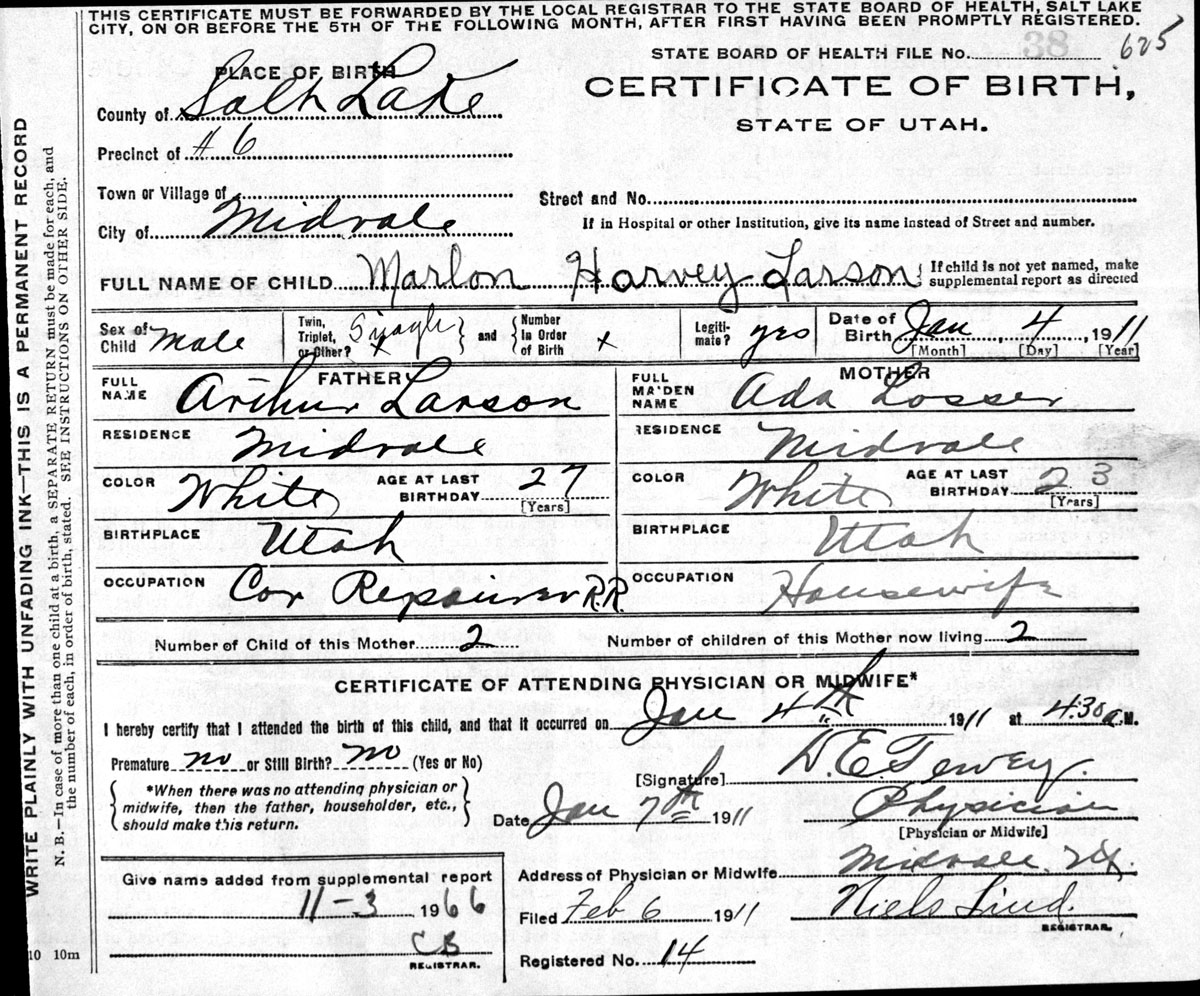 THIS CERTIFICATE MUST BE FORWARDED BY THE LOCAL REGISTRAR TO THE STATE BOARD OF HEALTH, SALT LAKE
CITY, ON OR BEFORE THE 5TH OF THE FOLLOWING MONTH, AFTER FIRST HAVING BEEN PROMPTLY REGISTERED.
WRITE PLAINLY WITH UNFADING INK—THIS IS A PERMANENT RECORD
N. B.—In case of more than one child at a birth, a SEPARATE RETURN must be made for each, and
the number of each, in order of birth, stated. SEE INSTRUCTIONS ON OTHER SIDE.
STATE BOARD OF HEALTH FILE No. 38 625
CERTIFICATE OF BIRTH,
STATE OF UTAH.
PLACE OF BIRTH
County of Salt Lake
Precinct of # 6
Town or Village of
City of Midvale
Street and No.
If in Hospital or other Institution, give its name instead of Street and number.
FULL NAME OF CHILD Marlon Harvey Larson { If child is not yet named, make
supplemental report as directed
Sex of Child Male
Twin, Triplet, or Other? Single x } and { Number In Order of Birth x
Legiti- mate? yes
Date of Birth Jan, 4, 1911
[Month] [Day] [Year]
FATHER
FULL NAME Arthur Larson
RESIDENCE Midvale
COLOR White AGE AT LAST BIRTHDAY 27 [Years]
BIRTHPLACE Utah
OCCUPATION Car Repairer R.R.
MOTHER
FULL MAIDEN NAME Ada Losser
RESIDENCE Midvale
COLOR White AGE AT LAST BIRTHDAY 23 [Years]
BIRTHPLACE Utah
OCCUPATION Housewife
Number of Child of this Mother 2 Number of children of this Mother now living 2
CERTIFICATE OF ATTENDING PHYSICIAN OR MIDWIFE*
I hereby certify that I attended the birth of this child, and that it occurred on Jan 4th 1911 at 4:30 a.M.
Premature no or Still Birth? no (Yes or No)
{ *When there was no attending physician or
midwife, then the father, householder, etc.,
should make this return. }
[Signature] D. E. Tewey.
Date Jan 7th 1911 Physician
[Physician or Midwife]
Address of Physician or Midwife Midvale, Ut.
Filed Feb 6 1911 Niels Lind.
REGISTRAR.
Registered No. 14
Give name added from supplemental report
11-3 1966
CB
REGISTRAR.
10 10m